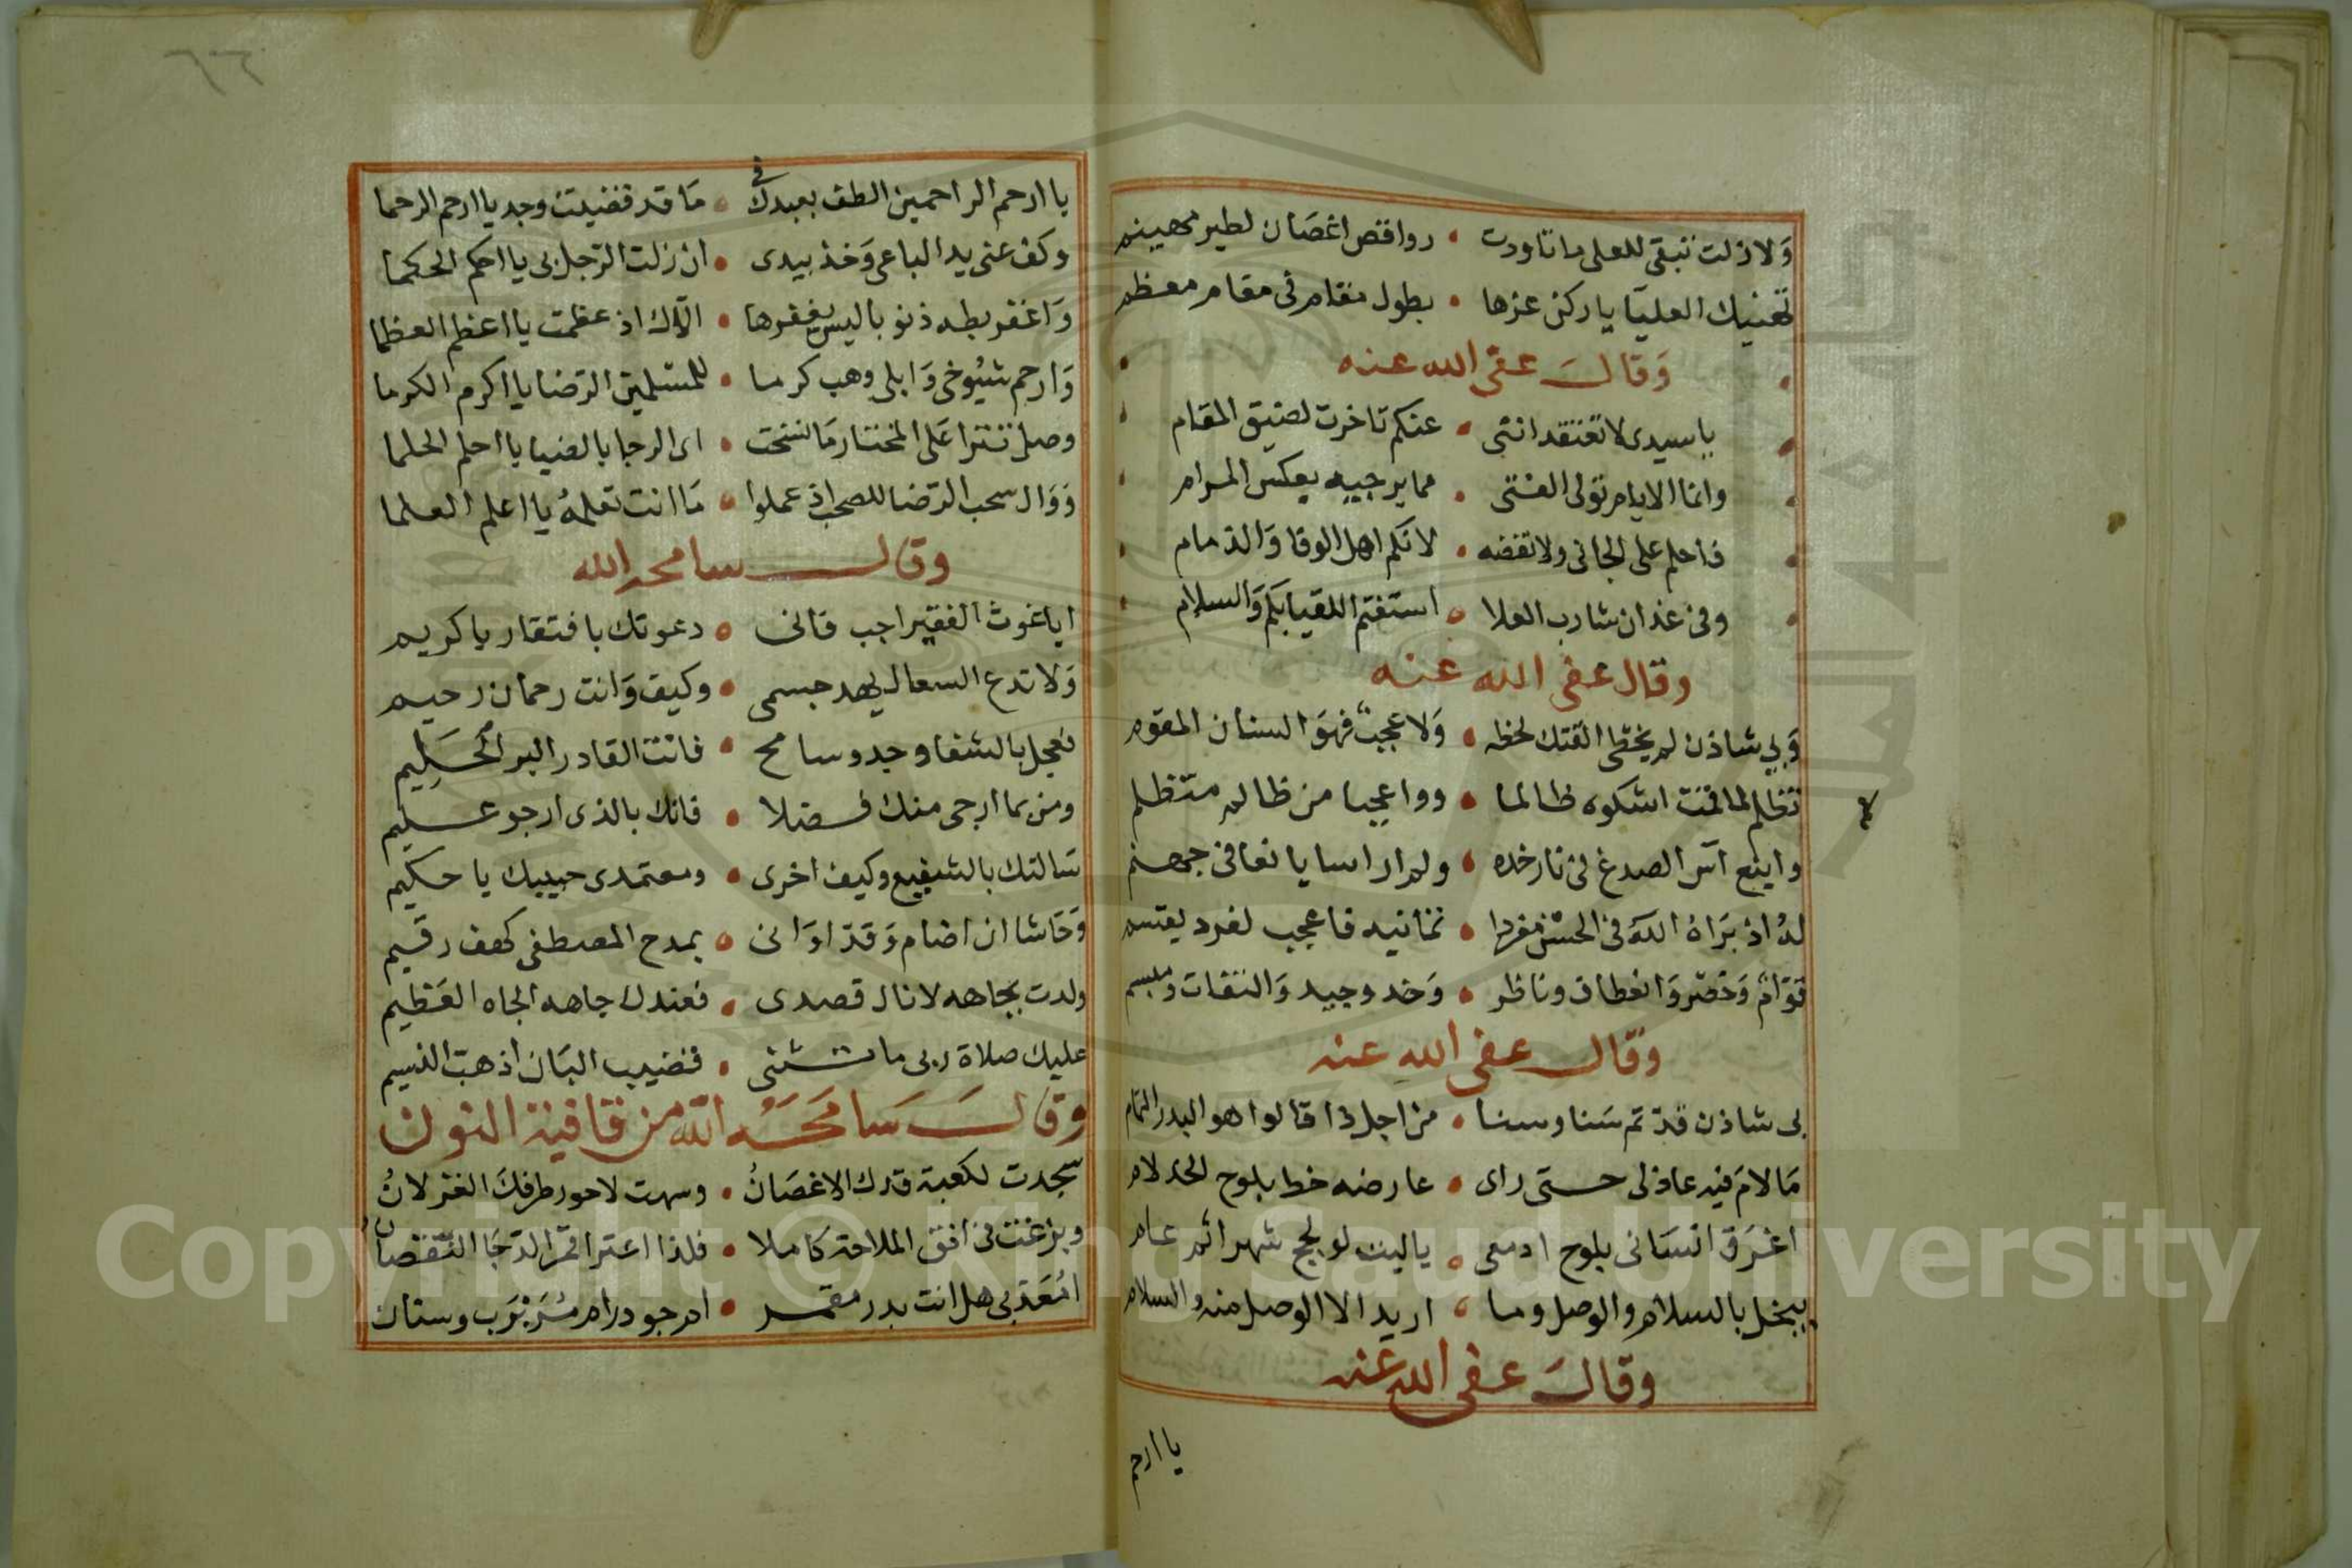 ولا زلت تبقى للعلى ما تاودت • رواقص اغصان لطير مهينم
تهنيك العليا يا ركن عزها • بطول مقام فى مقام معظم
وقال عفى الله عنه
يا سيدى لا تعتقد اننى • عنكم تاخرت لضيق المقام
وانما الايام تولى الفتى • مما يرجيه بعكس المرام
فاحلم على الجانى ولا تقضه • لانكم اهل الوفا والذمام
وفى غد ان شا رب العلا • استغنم اللقيا بكم والسلام
وقال عفى الله عنه
وبى شاذن لم يخطى الفتك لحظه • ولا عجب فهو السنان المقوم
تظلم لما قمت اشكوه ظالما • وواعجبا من ظالم متظلم
واينع آس الصدغ فى نار خده • ولم ار اسا يانعا فى جهنم
له اذ براه الله فى الحسن مفردا • ثمانيه فاعجب لفرد يقسم
قوام وخصر وانعطاف وناظر • وخد وجيد والتفات ومبسم
وقال عفى الله عنه
بى شاذن قد تم سنا وسنا • من اجل ذا قالوا هو البدر التمام
ما لام فيه عاذلى حتى راى • عارضه خط بلوح الخد لام
اغرق انسانى بلوح ادمعى • ياليت لو لجج شهر اثم عام
يبخل بالسلام والوصل وما • اريد الا الوصل منه والسلام
وقال عفى الله عنه
يا ارحم
٦٦
يا ارحم الراحمين الطف بعبدك فى • ما قد قضيت وجد يا ارحم الرحما
وكف عنى يد الباغى وخذ بيدى • ان زلت الرجل بى يا احكم الحكما
واغفر بطه ذنوبا ليس يغفرها • الاك اذ عظمت يا اعظم العظما
وارحم شيوخى وابلى وهب كرما • للمسلمين الرضا يا اكرم الكرما
وصل تترا على المختار ما نسخت • اى الرجا بالضيا يا احلم الحلما
ووال سحب الرضا للصحب اذ عملوا • ما انت تعلمه يا اعلم العلما
وقال سامحه الله
ايا غوث الفقير اجب فانى • دعوتك بافتقار يا كريم
ولا تدع السعال يهد جسمى • وكيف وانت رحمان رحيم
فعجل بالشفا وجد وسامح • فانت القادر البر الحكيم
ومن بما ارجى منك فضلا • فانك بالذى ارجو عليم
سالتك بالشفيع وكيف اخرى • ومعتمدى حبيبك يا حكيم
وحاشا ان اضام وقد اوانى • بمدح المصطفى كهف رقيم
ولدت بجاهه لانال قصدى • فعندك جاهه الجاه العظيم
عليك صلاة ربى ما تثنى • قضيب البان اذ هب النسيم
وقال سامحه الله من قافية النون
سجدت لكعبة قدك الاغصان • وسهت لاحور طرفك الغزلان
وبزغت فى افق الملاحة كاملا • فلذا اعترا قمر الدجا النقصان
امعذبى هل انت بدر مقمر • ام جودر ام شرب وسنان
Copyright © King Saud University